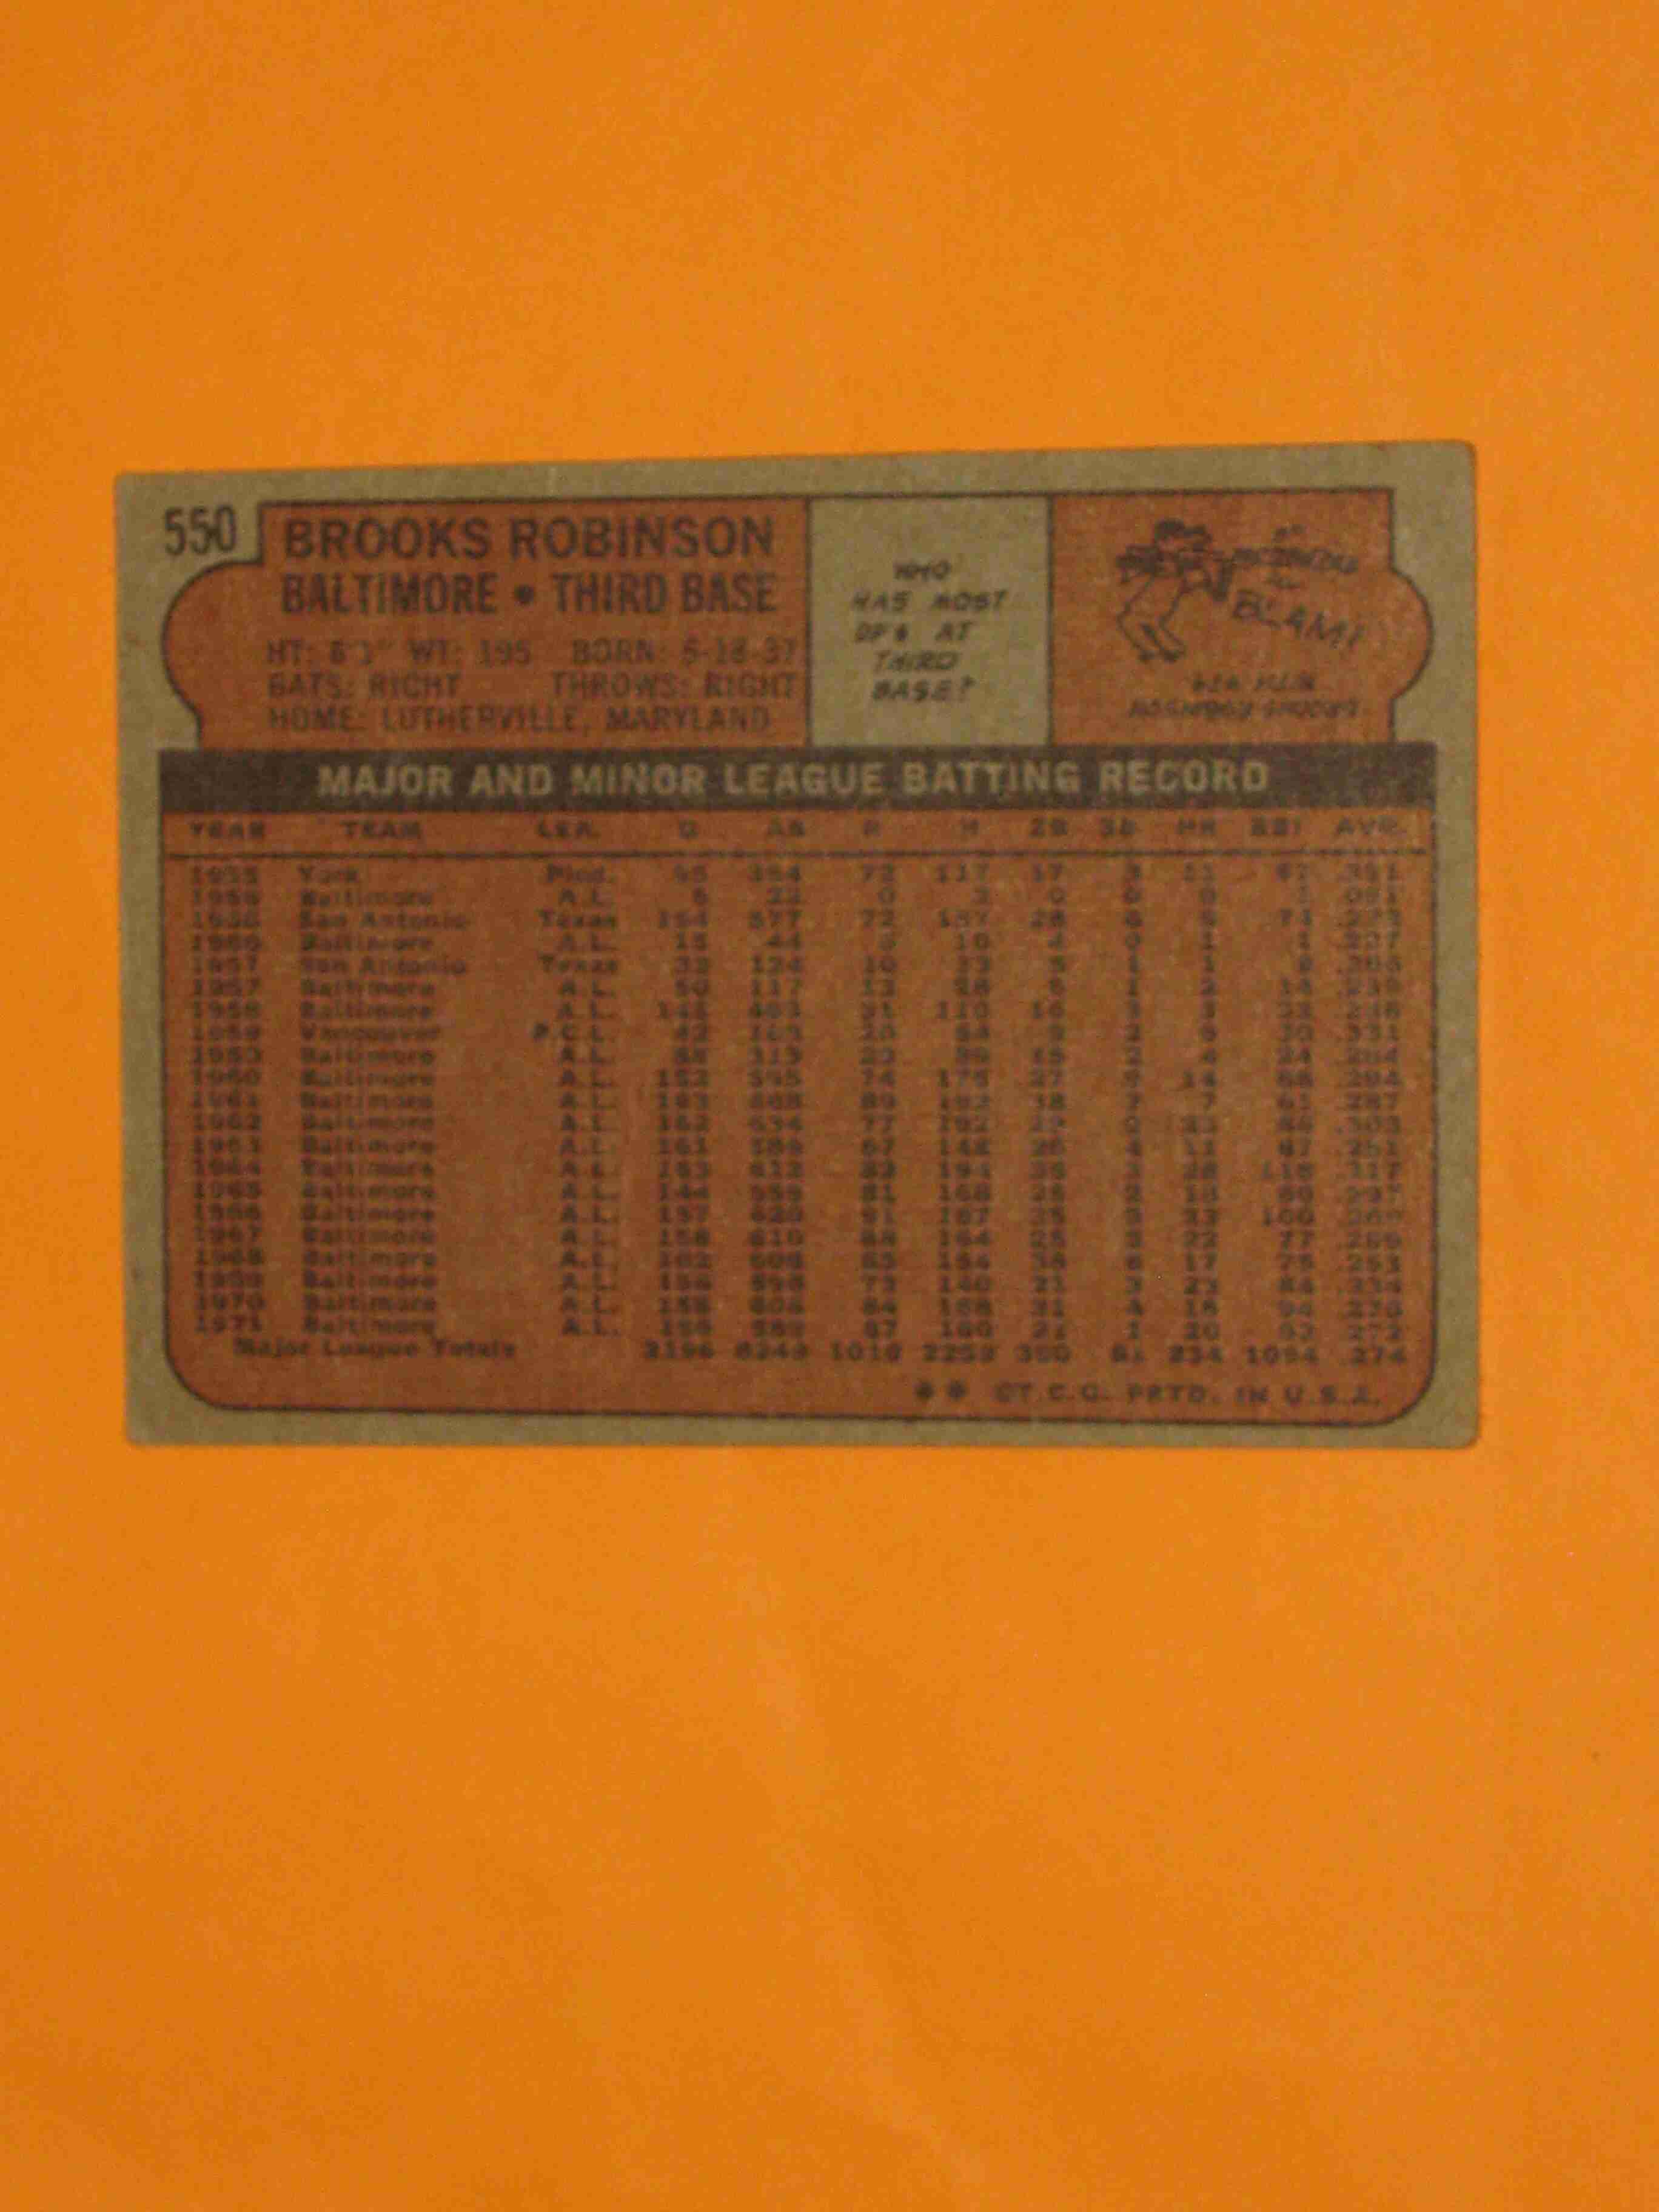 550
BROOKS ROBINSON
BALTIMORE • THIRD BASE
HT: 6'1" WT: 195 BORN: 5-18-37
BATS: RIGHT THROWS: RIGHT
HOME: LUTHERVILLE, MARYLAND
WHO
HAS MOST
DP'S AT
THIRD
BASE?
BLAM!
BROOKS ROBINSON
WITH
MAJOR AND MINOR LEAGUE BATTING RECORD
YEAR TEAM LEA. G AB R H 2B 3B HR RBI AVR.
1955 York Pied. 95 354 72 117 17 3 11 67 .331
1955 Baltimore A.L. 6 22 0 2 0 0 0 1 .091
1956 San Antonio Texas 154 577 72 157 28 6 9 74 .272
1956 Baltimore A.L. 15 44 10 4 0 1 1 .227
1957 San Antonio Texas 33 124 10 33 1 1
1957 Baltimore A.L. 50 117 13 28 1 2 14 .239
1958 Baltimore A.L. 145 463 31 110 16 3 3 32 .238
1959 Vancouver P.C.L. 42 163 20 54 9 2 6 30 .331
1959 Baltimore A.L. 88 313 29 89 15 2 4 24 .284
1960 Baltimore A.L. 152 595 74 175 27 9 14 88 .294
1961 Baltimore A.L. 163 668 89 192 38 7 7 61 .287
1962 Baltimore A.L. 162 634 77 192 29 9 23 86 .303
1963 Baltimore A.L. 161 589 67 148 26 4 11 67 .251
1964 Baltimore A.L. 163 612 82 194 35 3 28 118 .317
1965 Baltimore A.L. 144 559 81 166 25 2 18 80 .297
1966 Baltimore A.L. 157 620 91 167 35 2 23 100 .269
1967 Baltimore A.L. 158 610 88 164 25 5 22 77 .269
1968 Baltimore A.L. 162 608 65 154 36 6 17 75 .253
1969 Baltimore A.L. 156 598 73 140 21 3 23 84 .234
1970 Baltimore A.L. 158 608 84 168 31 4 18 94 .276
1971 Baltimore A.L. 156 589 67 160 21 1 20 92 .272
Major League Totals 1054 .274
** ©T.C.G. PRTD. IN U.S.A.